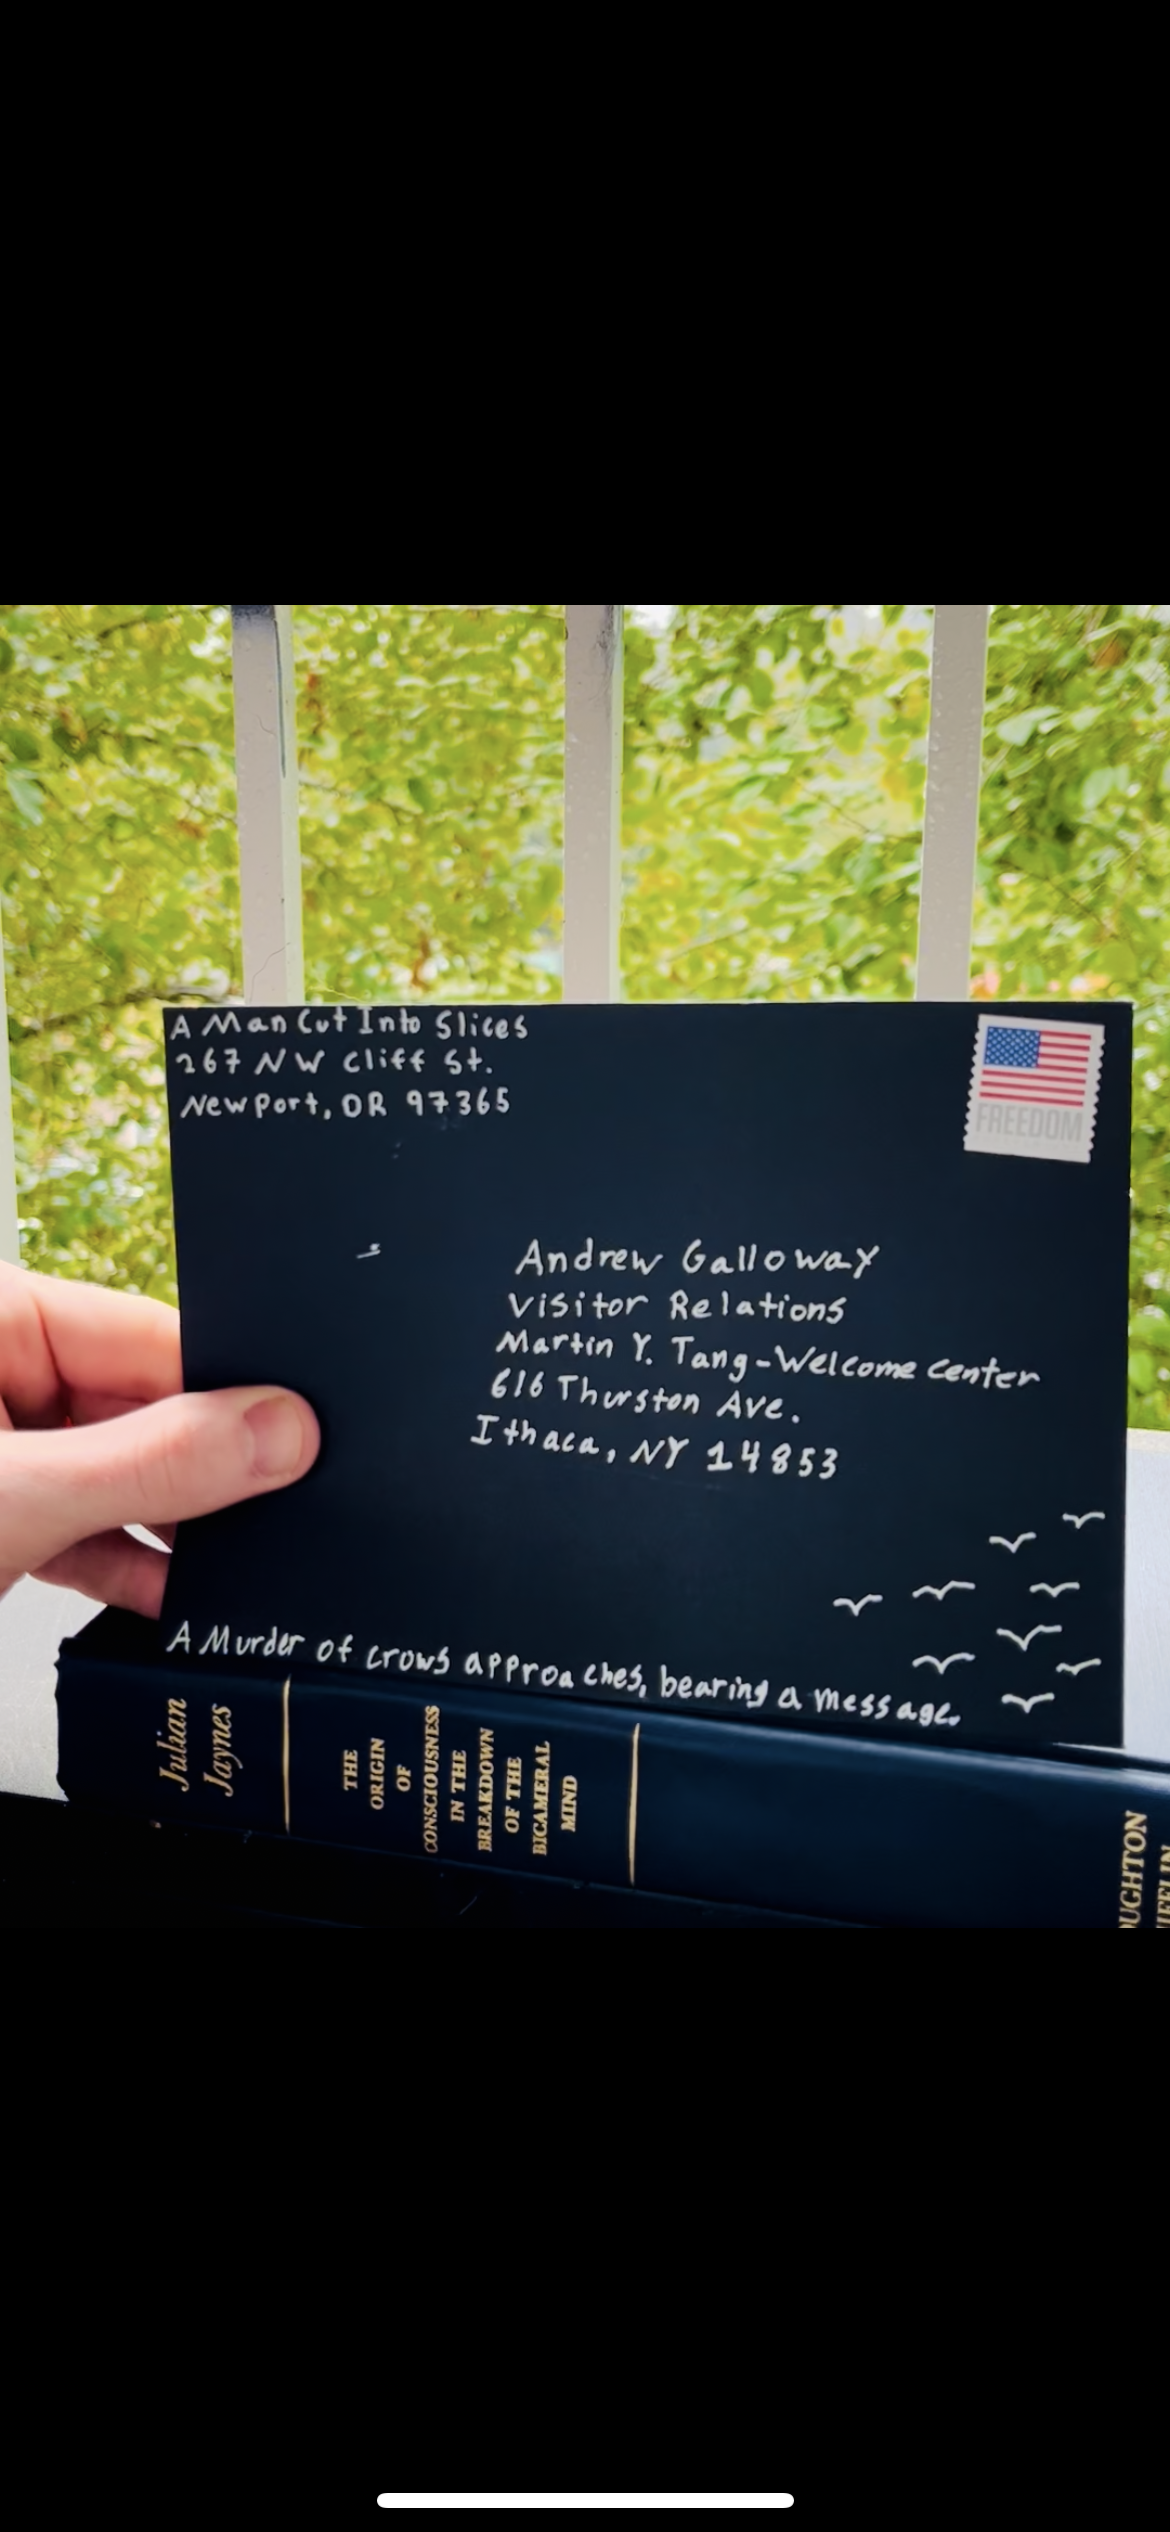 A Man Cut Into Slices
267 NW Cliff St.
Newport, OR 97365
FREEDOM
Andrew Galloway
Visitor Relations
Martin Y. Tang-Welcome Center
616 Thurston Ave.
Ithaca, NY 14853
A Murder of crows approaches, bearing a message.
Julian
Jaynes
THE
ORIGIN
OF
CONSCIOUSNESS
IN THE
BREAKDOWN
OF THE
BICAMERAL
MIND
OUGHTON